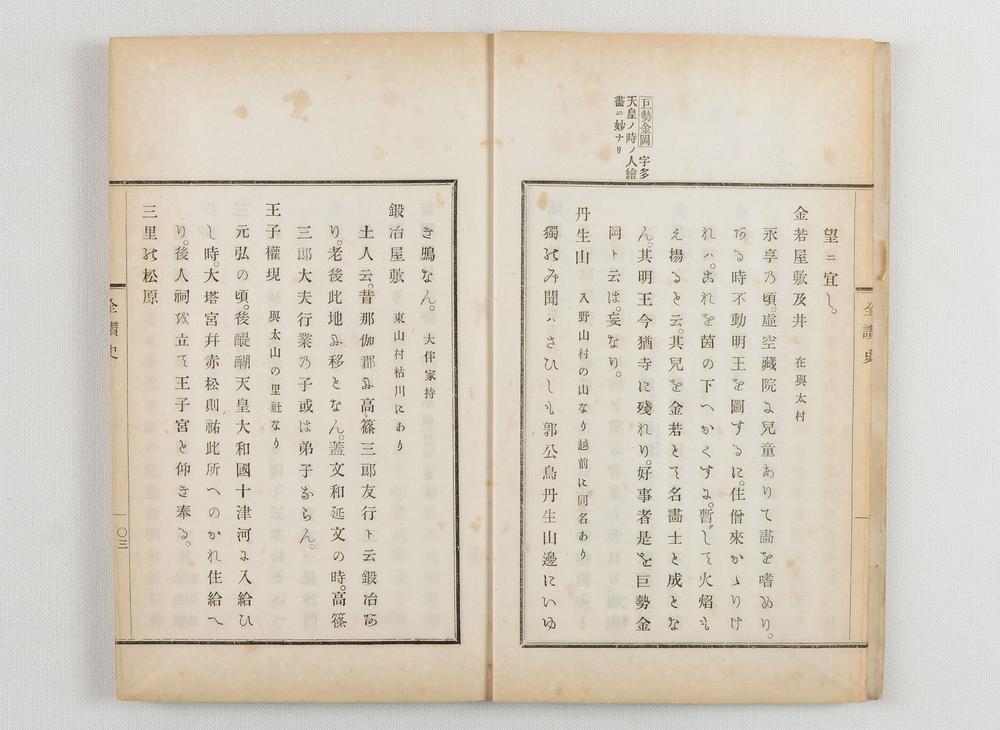 巨勢金岡 字多
天皇ノ時ノ人繪
畵ニ妙ナリ
望ニ宜し。
金若屋敷及井 在與太村
永享乃頃。虛空藏院よ兒童ありて畵を嗜めり。
ある時不動明王を圖するに。住僧來かゝりけ
れハ。あれを茵の下へかくすよ。暫して火焰も
え揚ると云。其兒を金若とて名畵士と成とな
ん。其明王今猶寺に殘れり。好事者是を巨勢金
岡ト云は。妄なり。
丹生山 入野山村の山なり越前に同名あり
獨のみ聞ハさひしも郭公鳥丹生山邊にいゆ
き鴉なん。 大伴家持
鍛冶屋敷 東山村枯川にあり
土人云。昔那伽郡よ高篠三郎友行ト云鍛冶あ
り。老後此地よ移となん。蓋文和延文の時。高篠
三郎大夫行業乃子或は弟子ならん。
王子權現 與太山の里社なり
元弘の頃。後醍醐天皇大和國十津河よ入給ひ
し時。大塔宮幷赤松則祐此所へのかれ住給へ
り。後人祠を立て王子宮と仰き奉る。
三里の松原
全讚史
全讚史
三〇